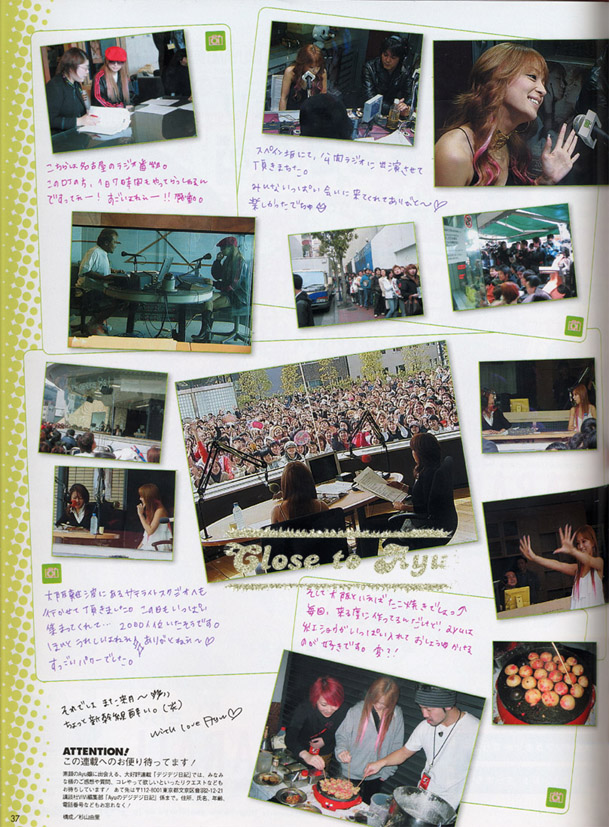 こちらは名古屋のラジオ番組。
このDJの方、1日7時間もやってらっしゃるん
ですってぇー! すごいよねぇー!! 感動。
スペイン坂にて、公開ラジオに出演させて
頂きました。
みんないっぱい会いに来てくれてありがと〜♡
楽しかったでちゅ
Close to Ayu
大阪難波にあるサテライトスタジオへも
行かせて頂きました。この日もいっぱい
集まってくれて… 2000人位いたそうです。
ほんとうれしいよねぇ ありがとねぇ〜
すっごいパワーでした。
そして大阪といえばたこ焼きでしょ
毎回、来る度に作ってるんだけど、ayuは
紅ショウガいっぱい入れておしょうゆかける
のが好きです。
それでは また来月〜
ちょっと新幹線酔い。(笑)
with Love Ayu♡
ATTENTION!
この連載へのお便り待ってます!
素顔のAyu嬢に出会える、大好評連載「デジデジ日記」では、みなみ
な様のご感想や質問、コレやって欲しいといったリクエストなども
お待ちしています! あて先は〒112-8001東京都文京区音羽2-12-21
講談社ViVi編集部「Ayuのデジデジ日記」係まで。住所、氏名、年齢、
電話番号などもお忘れなく!
構成/杉山由里
37